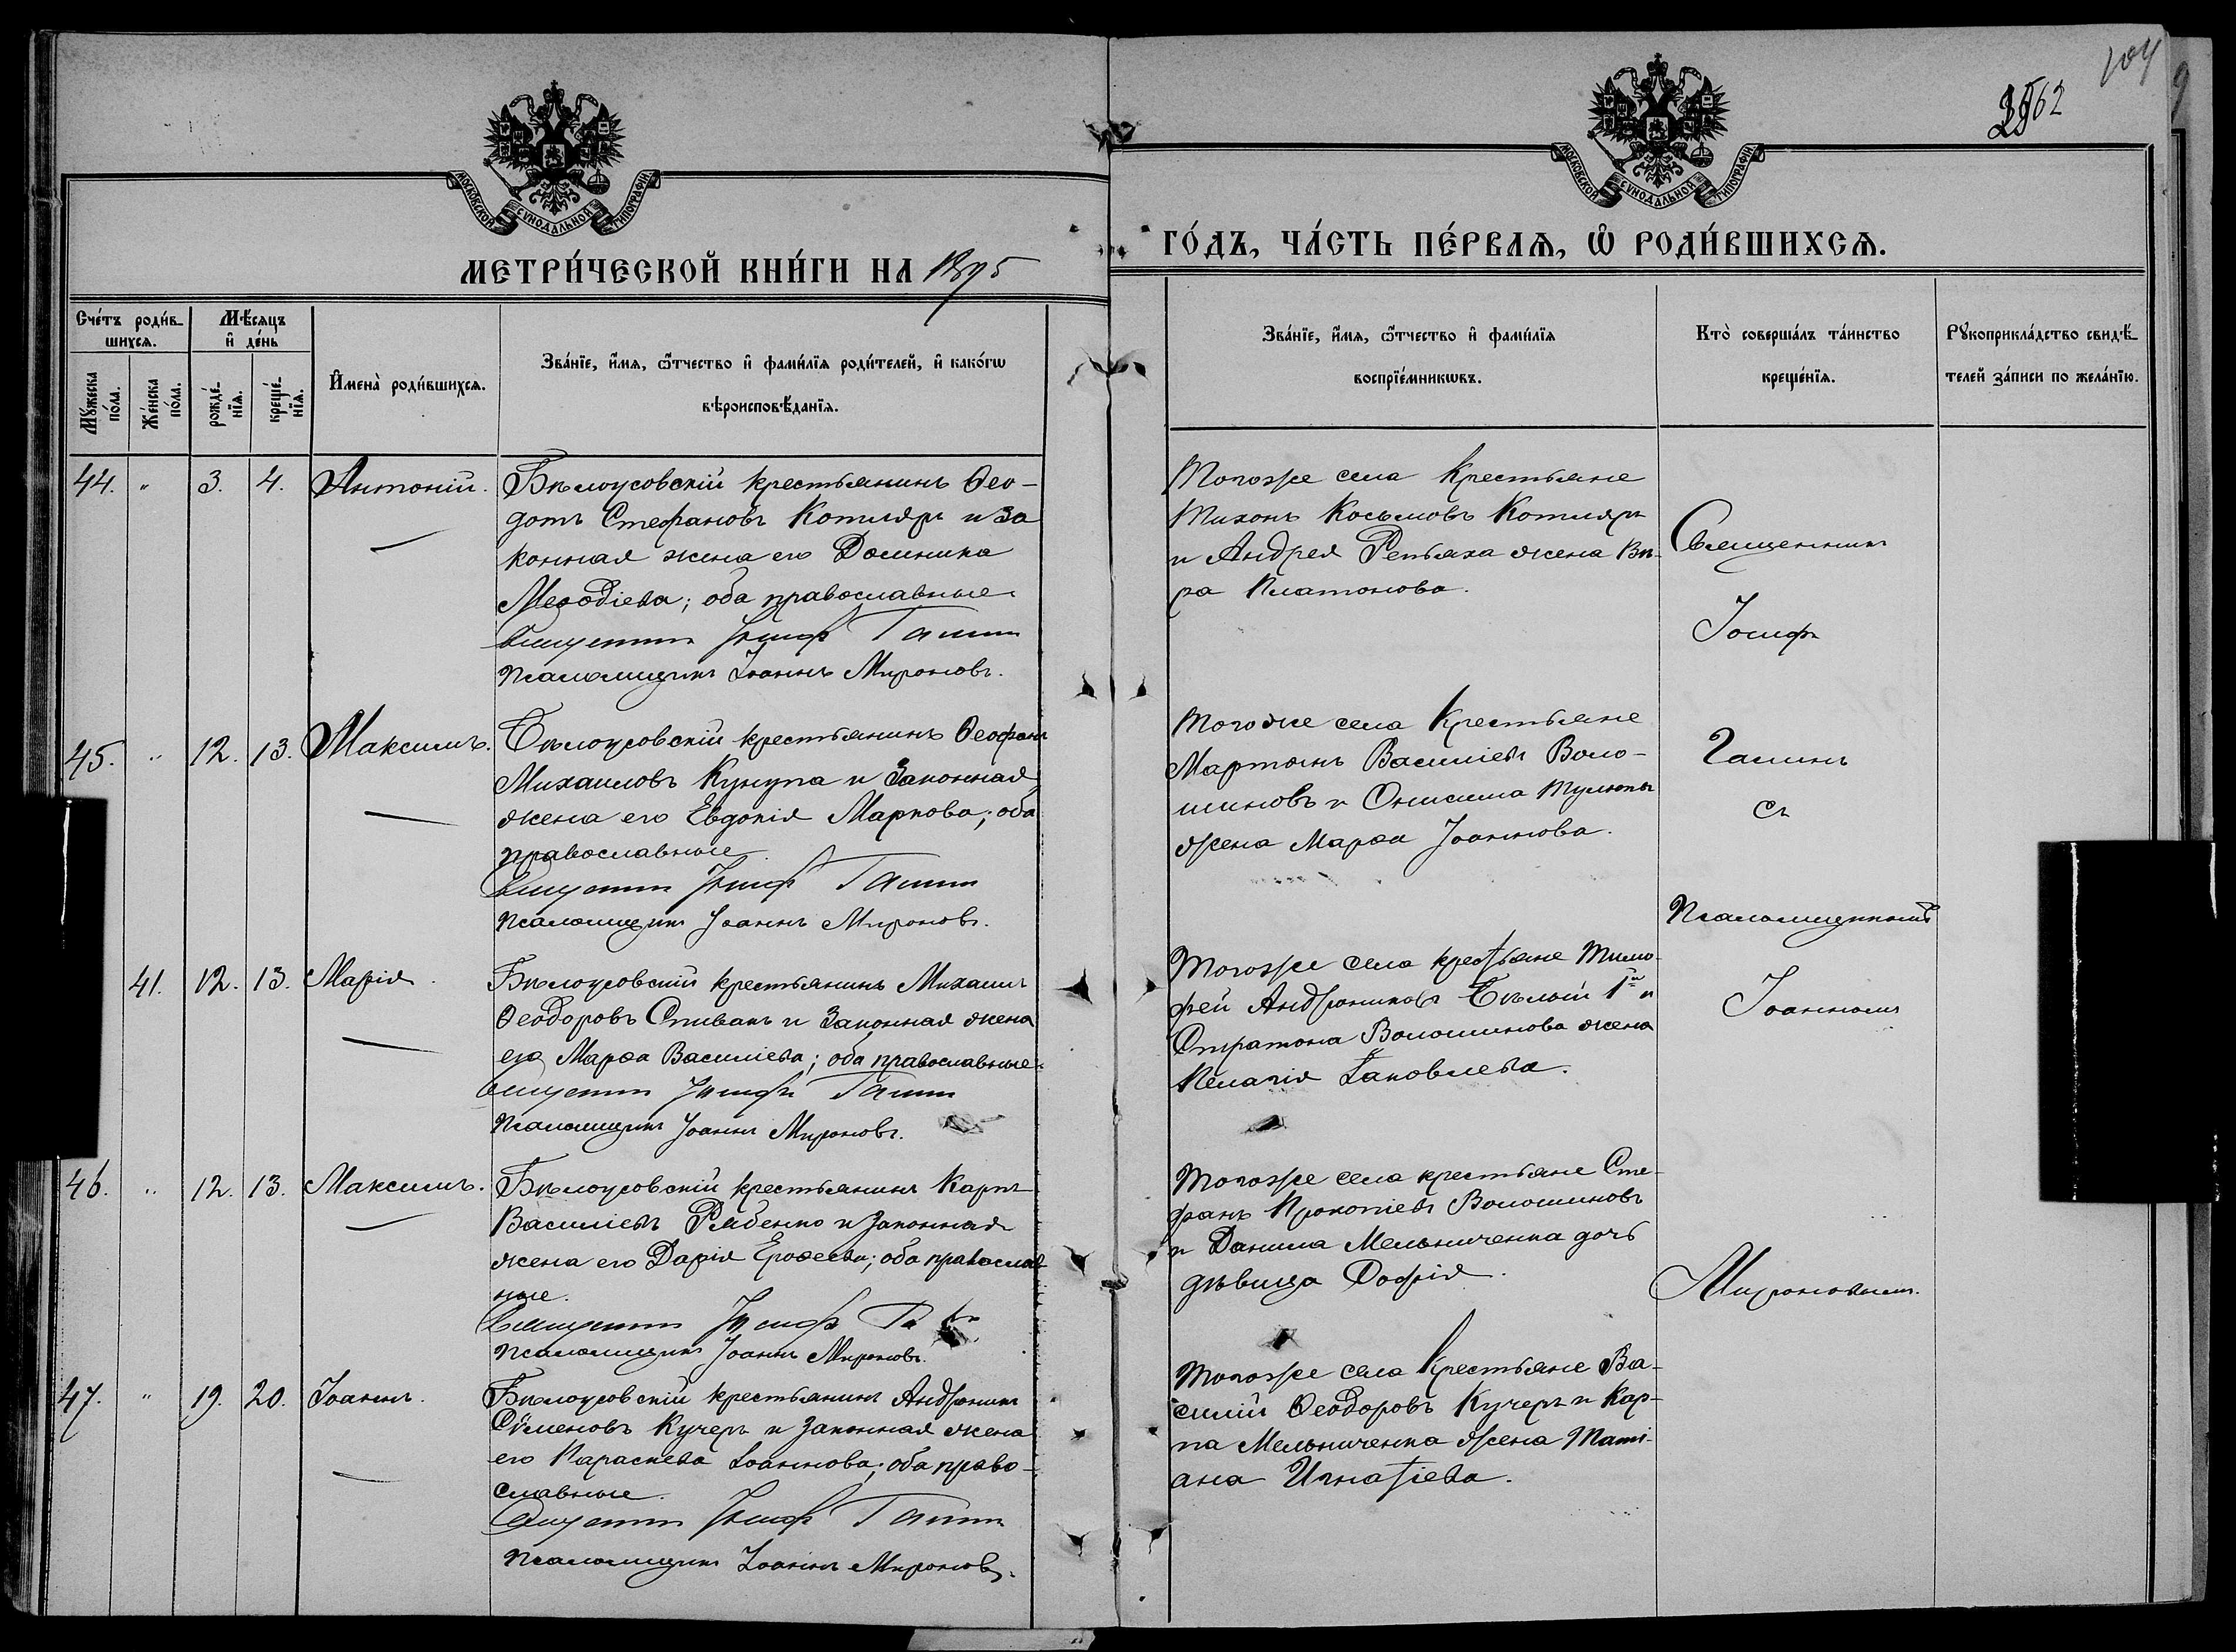 104
2562
МОСКОВСКОЙ СѴНОДАЛЬНОЙ ТИПОГРАФІИ
МОСКОВСКОЙ СѴНОДАЛЬНОЙ ТИПОГРАФІИ
МЕТРИ́ЧЕСКОЙ КНИ́ГИ НА 1895
ГО́ДЪ, ЧА́СТЬ ПЕ́РВАѦ, Ѡ҆ РОДИ́ВШИХСѦ.
Сче́тъ роди́в-
шихсѧ.
Мꙋжеска по́ла.
Же́нска по́ла.
Мѣ́сѧцъ
и҆ де́нь
рожде́-
нїѧ.
креще́-
нїѧ.
И҆мена̀ роди́вшихсѧ.
Зва́нїе, и҆́мѧ, ѻ҆́тчество и҆ фами́лїѧ роди́телей, и҆ како́гѡ
вѣроисповѣ́данїѧ.
Зва́нїе, и҆́мѧ, ѻ҆́тчество и҆ фами́лїѧ
воспрїе́мникѡвъ.
Кто̀ соверша́лъ та́инство
креще́нїѧ.
Рꙋкоприкла́дство свидѣ́-
телей за́писи по жела́нїю.
44. " 3. 4. Антоній.
Бѣлоусовскій крестьянинъ Ѳео-
дотъ Стефановъ Котляръ и за
конная жена его Домника
Меѳодіева; оба православные
Священникъ Іосифъ Галинъ
Псаломщикъ Іоаннъ Мироновъ.
Тогоже села Крестьяне
Тихонъ Косьмовъ Котляръ
и Андрея Репьяха жена Вѣ-
ра Платонова.
45. " 12. 13. Максимъ.
Бѣлоусовскій крестьянинъ Ѳеофанъ
Михаиловъ Кукупа и Законная
жена его Евдокія Маркова; оба
православные
Священникъ Іосифъ Галинъ
Псаломщикъ Іоаннъ Мироновъ.
Тогоже села Крестьяне
Мартынъ Василіевъ Воло-
шиновъ и Онисима Тулюпы
жена Марѳа Іоаннова.
41. 12. 13. Марія.
Бѣлоусовскій крестьянинъ Михаилъ
Ѳеодоровъ Спивакъ и Законная жена
его Марѳа Василіева; оба православные.
Священникъ Іосифъ Галинъ
Псаломщикъ Іоаннъ Мироновъ.
Тогоже села крестьяне Тимо-
фей Андрониковъ Бѣлый 1й и
Стратона Волошинова жена
Пелагія Іаковлева.
46. " 12. 13. Максимъ.
Бѣлоусовскій крестьянинъ Карпъ
Василіевъ Рябенко и Законная
жена его Дарія Ероѳеева; оба православ
ные.
Священникъ Іосифъ
Псаломщикъ Іоаннъ Мироновъ.
Тогоже села крестьяне Сте-
фанъ Прокопіевъ Волошиновъ
и Данила Мельниченка дочь
дѣвица Софія.
47. " 19. 20. Іоаннъ.
Бѣлоусовскій крестьянинъ Андроникъ
Сѵменовъ Кучеръ и Законная жена
его Параскева Іоаннова; оба право-
славные.
Священникъ Іосифъ Галинъ
Псаломщикъ Іоаннъ Мироновъ.
Тогоже села Крестьяне Ва-
силій Ѳеодоровъ Кучеръ и Кар-
па Мельниченка жена Тати-
ана Игнатіева.
Священникъ
Іосифъ
Галинъ
съ
Псаломщикомъ
Іоанномъ
Мироновымъ.